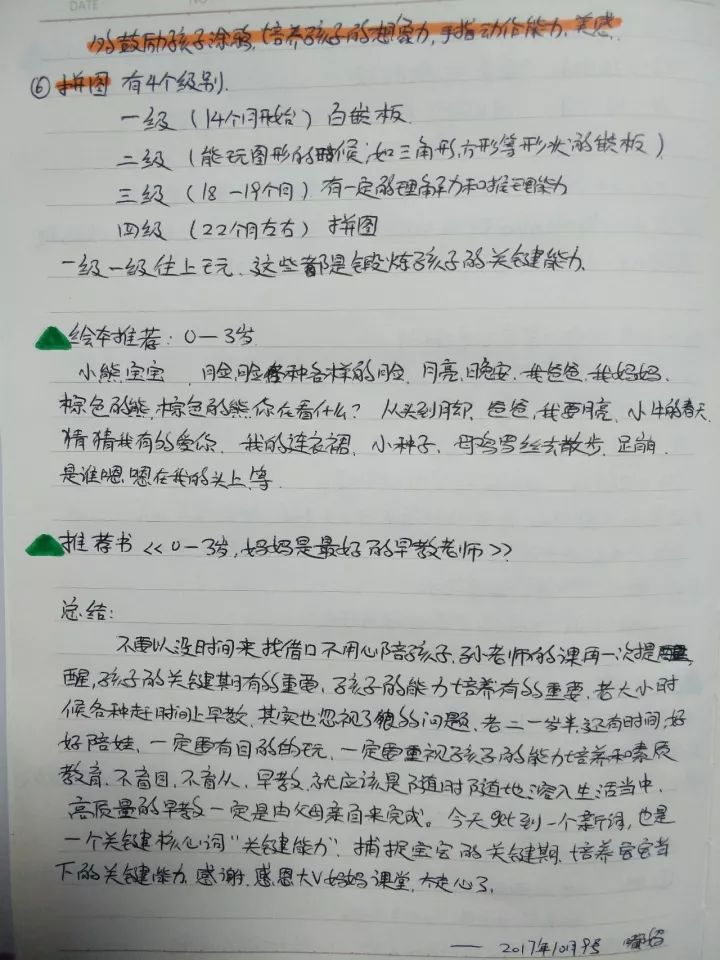 DATE
的鼓励孩子涂鸦,培养孩子的想象力,手指动作能力,美感.
⑥ 拼图 有4个级别.
一级 (14个月开始) 白嵌板.
二级 (能玩图形的时候,如三角形,方形等形状的嵌板)
三级 (18-19个月) 有一定的理解力和推理能力
四级 (22个月左右) 拼图
一级一级往上玩.这些都是锻炼孩子的关键能力.
绘本推荐: 0—3岁.
小熊宝宝 脸,脸各种各样的脸. 月亮,晚安. 我爸爸.我妈妈.
棕色的熊,棕色的熊,你在看什么? 从头到脚. 爸爸,我要月亮. 小牛的春天.
猜猜我有多爱你. 我的连衣裙. 小种子. 母鸡罗丝去散步.
是谁嗯嗯在我的头上,等.
推荐书 <<0—3岁,妈妈是最好的早教老师>>.
总结:
不要以没时间来找借口不用心陪孩子.孙老师的课再一次提
醒,孩子的关键期有多重要,孩子的能力培养有多重要.老大小时
候各种赶时间上早教.其实也忽视了很多问题.老二一岁半.还有时间,好
好陪娃.一定要有目的的玩.一定要重视孩子的能力培养和素质
教育.不盲目,不盲从.早教.就应该是随时随地溶入生活当中.
高质量的早教一定是由父母亲自来完成。今天get到一个新词,也是
一个关键核心词"关键能力".捕捉宝宝的关键期.培养宝宝当
下的关键能力.感谢.感恩大V妈妈课堂.太走心了.
—— 2017年10月9号